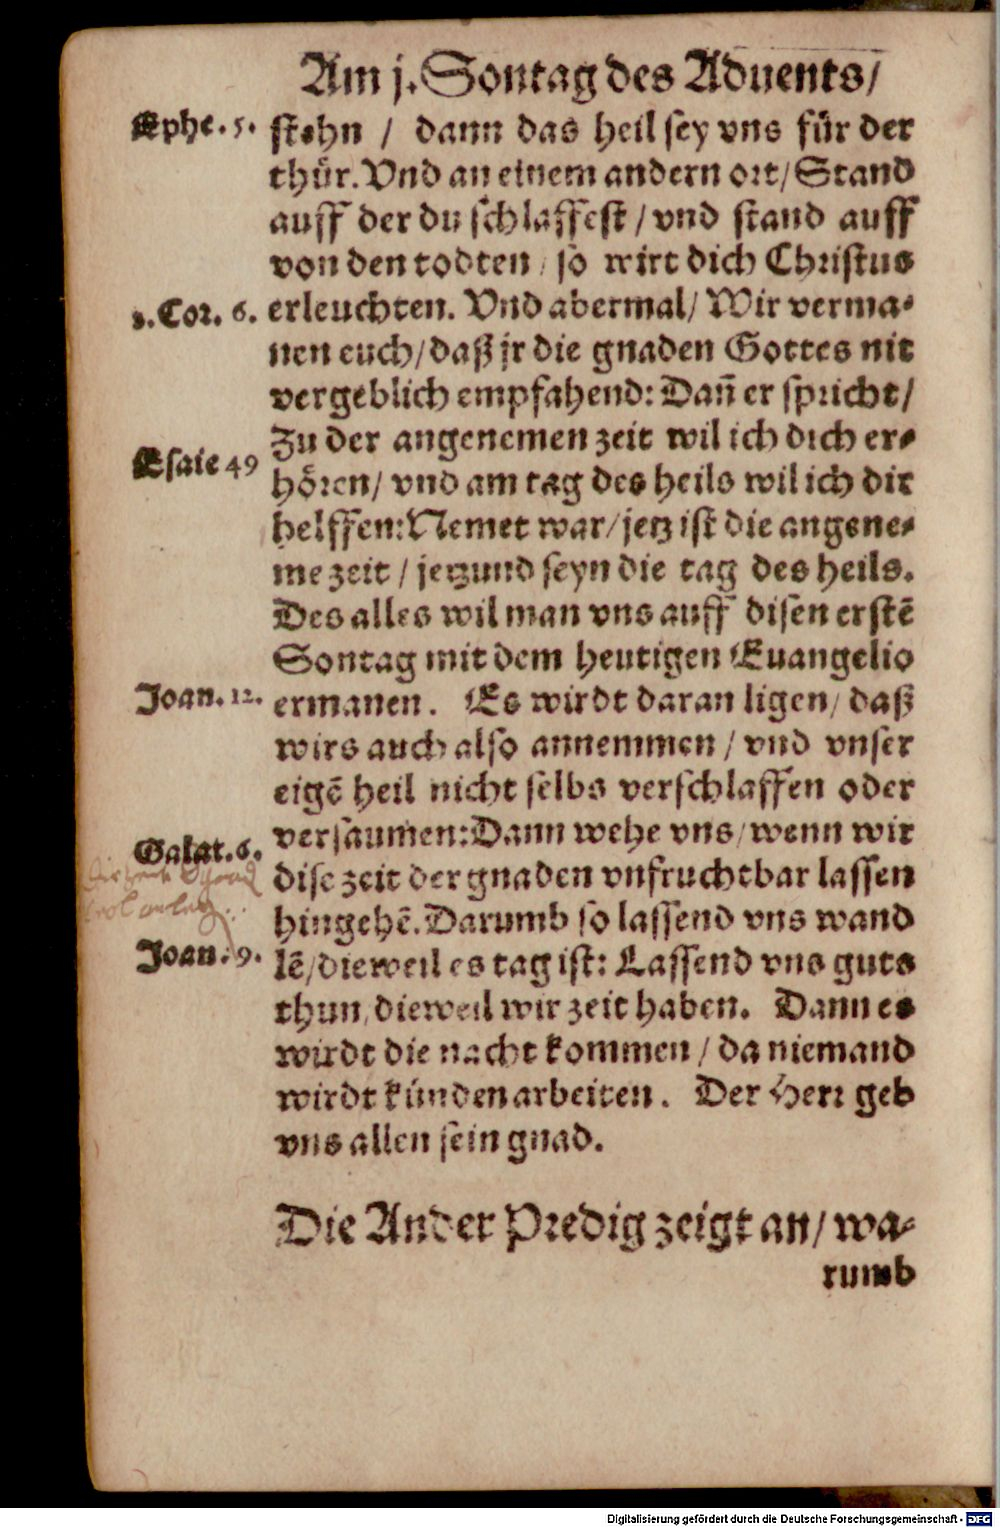 Am j. Sontag des Aduents/
Ephe. 5.
stehn / dann das heil sey vns für der
thür. Vnd an einem andern ort/ Stand
auff der du schlaffest / vnd stand auff
von den todten / so wirt dich Christus
2. Cor. 6.
erleuchten. Vnd abermal/ Wir verma-
nen euch/ daß jr die gnaden Gottes nit
vergeblich empfahend: Dañ er spricht/
Zu der angenemen zeit wil ich dich er-
Esaie 49
hören/ vnd am tag des heils wil ich dir
helffen: Nemet war/ jetz ist die angene-
me zeit / jetzund seyn die tag des heils.
Des alles wil man vns auff disen erstē
Sontag mit dem heutigen Euangelio
Joan. 12.
ermanen. Es wirdt daran ligen/ daß
wirs auch also annemmen / vnd vnser
eigē heil nicht selbs verschlaffen oder
Galat. 6.
versaumen: Dann wehe vns/ wenn wir
dise zeit der gnaden vnfruchtbar lassen
hingehē. Darumb so lassend vns wand
Joan. 9.
lē/ dieweil es tag ist: Lassend vns guts
thun, dieweil wir zeit haben. Dann es
wirdt die nacht kommen / da niemand
wirdt künden arbeiten. Der Herr geb
vns allen sein gnad.
Die Ander Predig zeigt an/ wa-
rumb
Digitalisierung gefördert durch die Deutsche Forschungsgemeinschaft - DFG